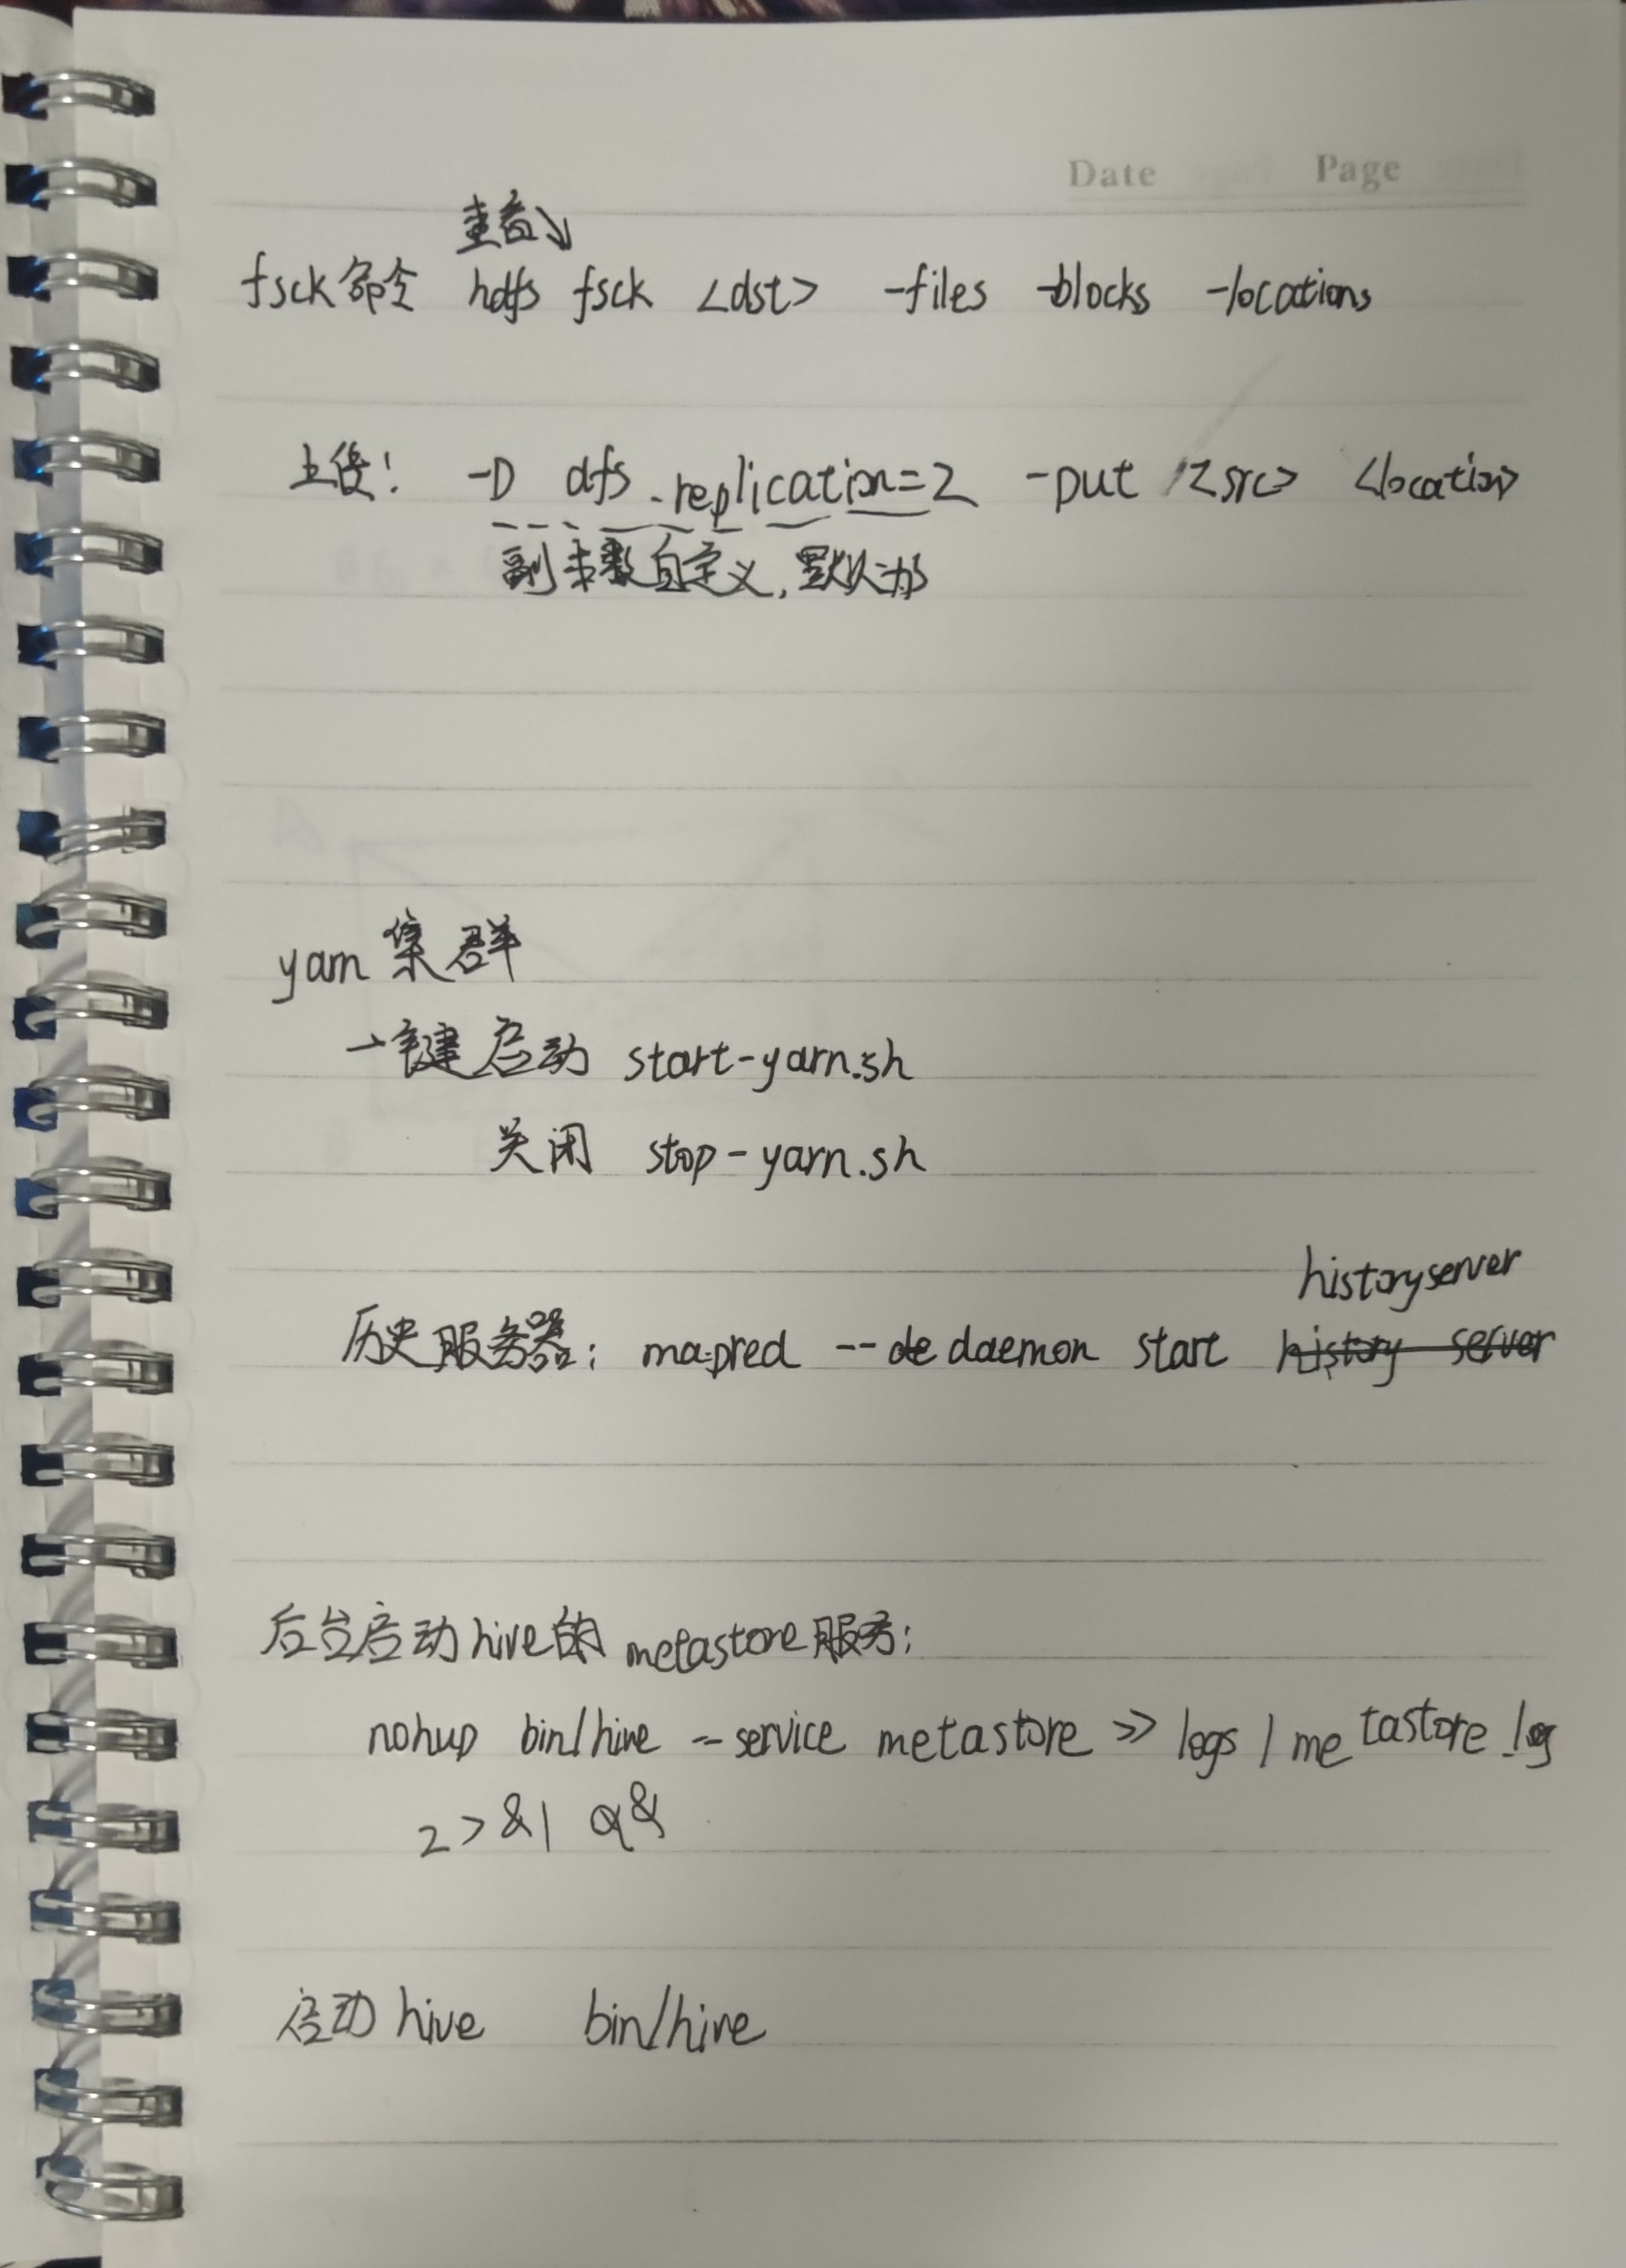 Date Page
查看↓
fsck命令 hdfs fsck <dst> -files -blocks -locations
上传: -D dfs.replication=2 -put <src> <location>
副本数自定义,默认为3
yarn 集群
一键启动 start-yarn.sh
关闭 stop-yarn.sh
historyserver
历史服务器: mapred --de daemon start history server
后台启动hive的metastore服务:
nohup bin/hive --service metastore >> logs/metastore.log
2>&1 &
启动hive bin/hive